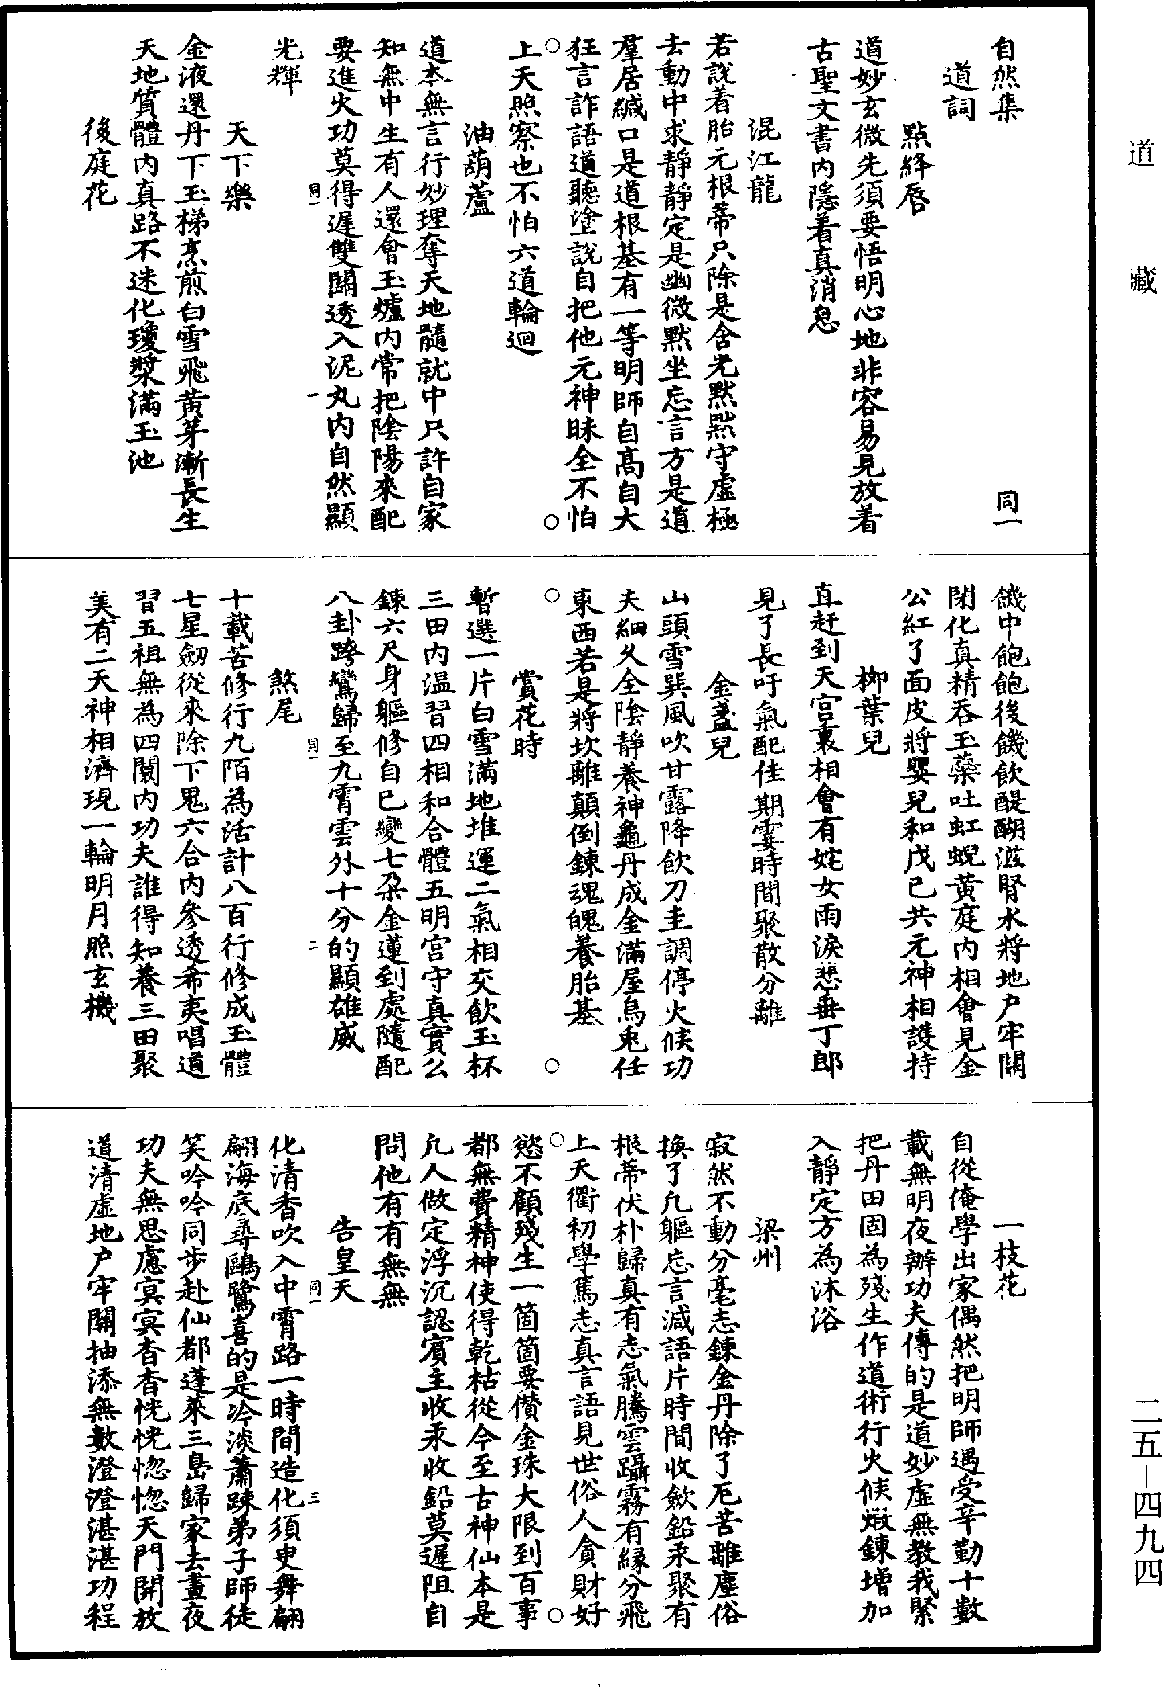 道藏
自然集
同一
道詞
點絳唇
道妙玄微先須要悟明心地非容易見放着
古聖文書內隱着真消息
混江龍
若說着胎元根蒂只除是含光默默守虛極
去動中求靜靜定是幽微默坐忘言方是道
羣居緘口是道根基有一等明師自高自大
狂言詐語道聽塗說自把他元神昧全不怕
上天照察也不怕六道輪迴
油葫蘆
道本無言行妙理奪天地髓就中只許自家
知無中生有人還會玉爐內常把陰陽來配
要進火功莫得遲雙關透入泥丸內自然顯
同一
一
光輝
天下樂
金液還丹下玉梯烹煎白雪飛黃芽漸長生
天地質體內真路不迷化瓊漿滿玉池
後庭花
饑中飽飽後饑飲醍醐滋腎水將地戶牢關
閉化真精吞玉藥吐虹蜺黃庭內相會見金
公紅了面皮將嬰兒和戊己共元神相護持
柳葉兒
直赶到天宮裏相會有姹女雨淚悲垂丁郎
見了長吁氣配佳期霎時間聚散分離
金盞兒
山頭雪巽風吹甘露降飲刀圭調停火候功
夫細父全陰靜養神龜丹成金滿屋烏兎任
東西若是將坎離顛倒鍊魂魄養胎基
賞花時
暫選一片白雪滿地堆運二氣相交飲玉杯
三田內溫習四相和合體五明宮守真實么
鍊六尺身軀修自已變七朶金蓮到處隨配
八卦跨鸞歸至九霄雲外十分的顯雄威
同一
二
煞尾
十載苦修行九陌為活計八百行修成玉體
七星劒從來除下鬼六合內參透希夷唱道
習五祖無為四闡內功夫誰得知養三田聚
美有二天神相濟現一輪明月照玄機
一枝花
自從俺學出家偶然把明師遇受辛勤十數
載無明夜辦功夫傳的是道妙虛無教我緊
把丹田固為殘生作道術行火候煅鍊增加
入靜定方為沐浴
梁州
寂然不動分毫志鍊金丹除了厄苦離塵俗
換了凡軀忘言減語片時間收斂鉛汞聚有
根蒂伏朴歸真有志氣騰雲躡霧有緣分飛
上天衢初學篤志真言語見世俗人貪財好
慾不顧殘生一箇箇要儹金珠大限到百事
都無費精神使得乾枯從今至古神仙本是
凡人做定浮沉認賓主收汞收鉛莫遲阻自
問他有有無無
告皇天
化清香吹入中霄路一時間造化須臾舞翩
同一
三
翩海底尋鷗鷺喜的是冷淡蕭踈弟子師徒
笑吟吟同步赴仙都蓬萊三島歸家去晝夜
功夫無思慮冥冥杳杳恍恍惚惚天門開放
道清虛地戶牢關抽添無數澄澄湛湛功程
二五—四九四